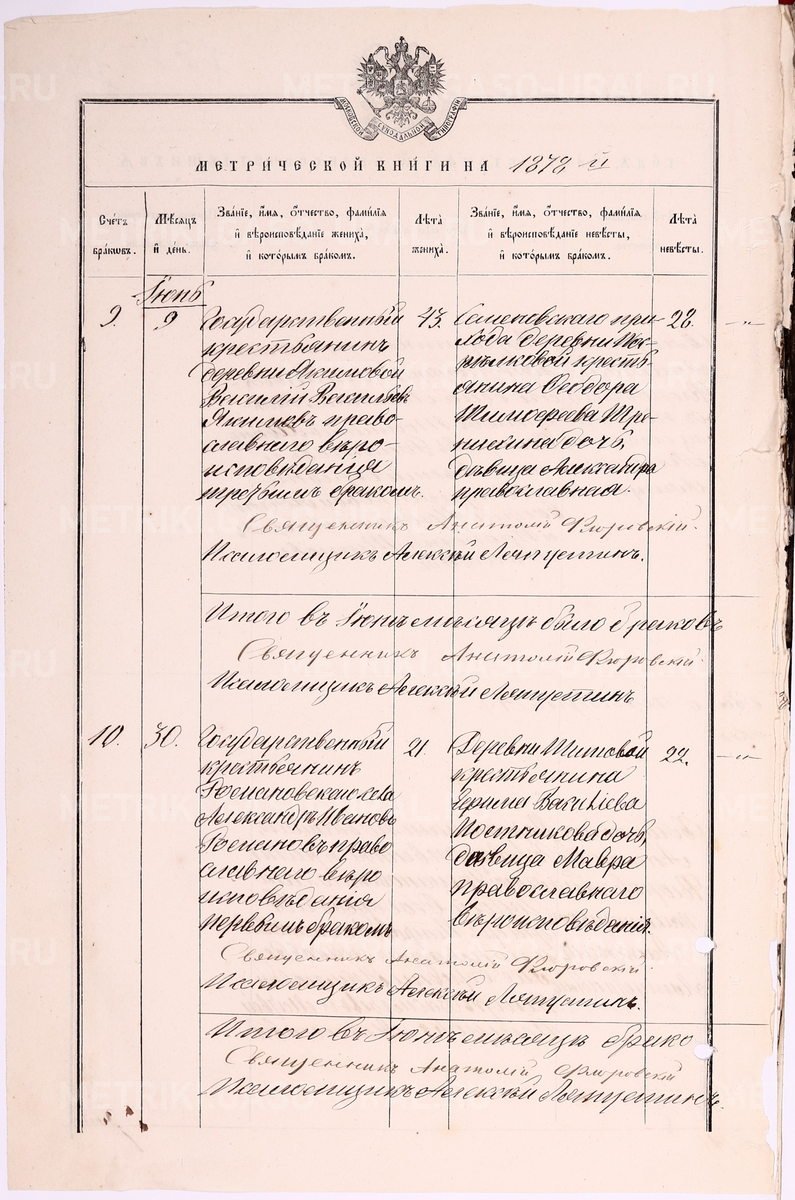 МЕТРИ́ЧЕСКОЙ КНИ́ГИ НА 1878 й
Счетъ браковъ.
Мѣсяцъ и́ день.
Зва́нїе, и́мя, о́тчество, фами́лїя и́ вѣроисповѣ́данїе жениха̀, и́ кото́рымъ бра́комъ.
Лѣ́та жениха̀.
Зва́нїе, и́мя, о́тчество, фами́лїя и́ вѣроисповѣ́данїе невѣ́сты, и́ кото́рымъ бра́комъ.
Лѣ́та невѣ́сты.
Іюнь
9.
9
Государственный
крестьянинъ
деревни Якимовой
Василій Васильевъ
Якимовъ право-
славнаго вѣро-
исповѣданія
третьимъ бракомъ.
43.
Семеновскаго при-
хода деревни
крестья-
янина Ѳеодора
Тимофѣева
дочь,
дѣвица Александра
православная.
28.
Священникъ Анатолій Флоровскій.
Псаломщикъ Алексѣй Ляпустинъ.
Итого въ Іюнѣ мѣсяцѣ было браковъ
Священникъ Анатолій Флоровскій.
Псаломщикъ Алексѣй Ляпустинъ
10.
30.
Государственный
крестьянинъ
села
Александръ Ивановъ
право
славнаго вѣро
исповѣданія
первымъ бракомъ
21
Деревни Титовой
крестьянина
Васильева
Постникова дочь,
дѣвица Мавра
православнаго
вѣроисповѣданія.
22.
Священникъ Анатолій Флоровскій.
Псаломщикъ Алексѣй Ляпустинъ.
Итого въ Іюнѣ мѣсяцѣ брако
Священникъ Анатолій Флоровскій
Псаломщикъ Алексѣй Ляпустинъ.